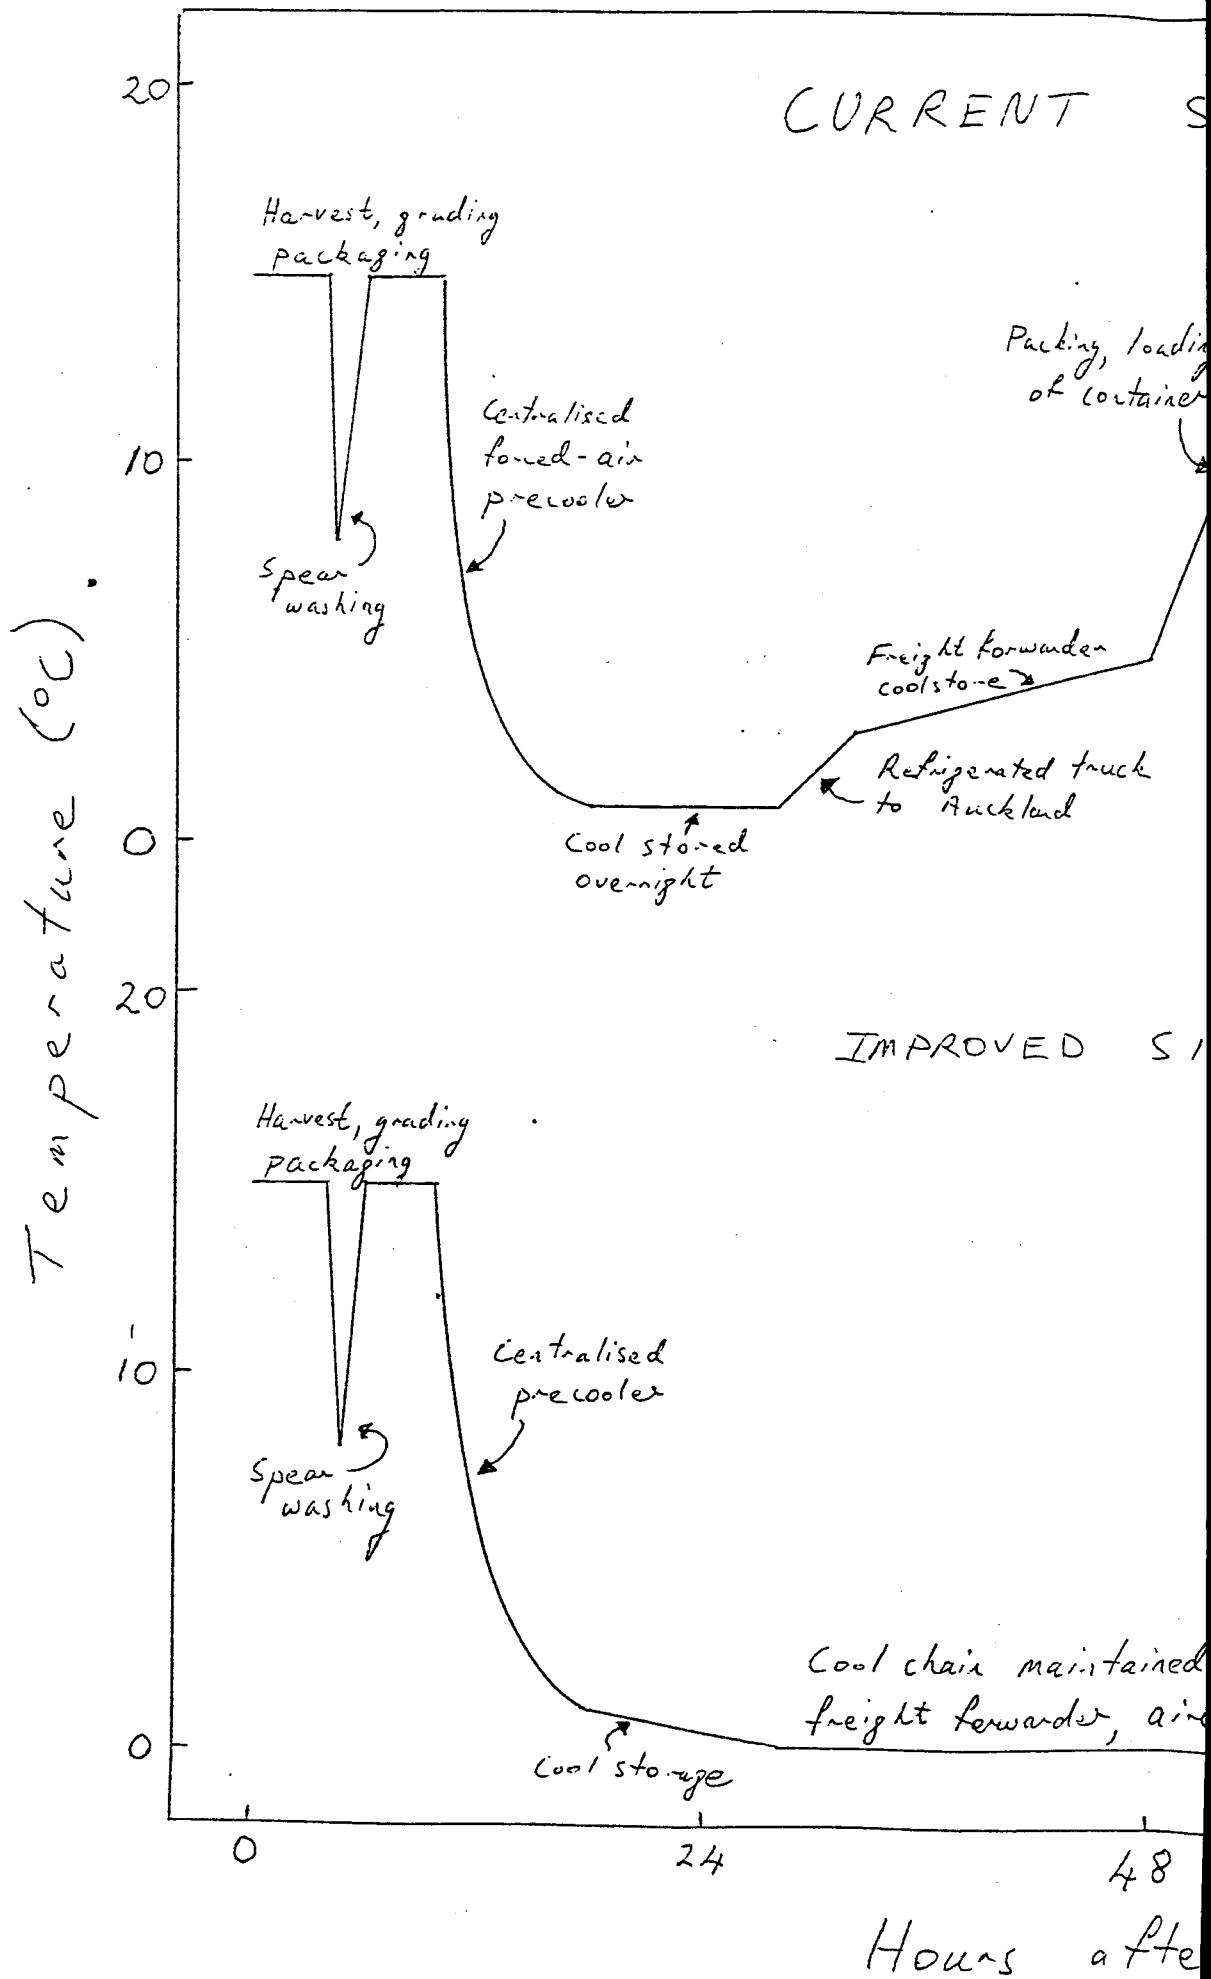 20
CURRENT S
Harvest, grading
packaging
Packing, loadin
of container
Centralised
forced-air
precooler
10
Spear
washing
Freight forwarder
coolstore
Refrigerated truck
to Auckland
0
Cool stored
overnight
Temperature (°C).
20
IMPROVED SI
Harvest, grading
packaging
Centralised
precooler
10
Spear
washing
Cool chain maintained
freight forwarder, air
0
Cool storage
0 24 48
Hours afte